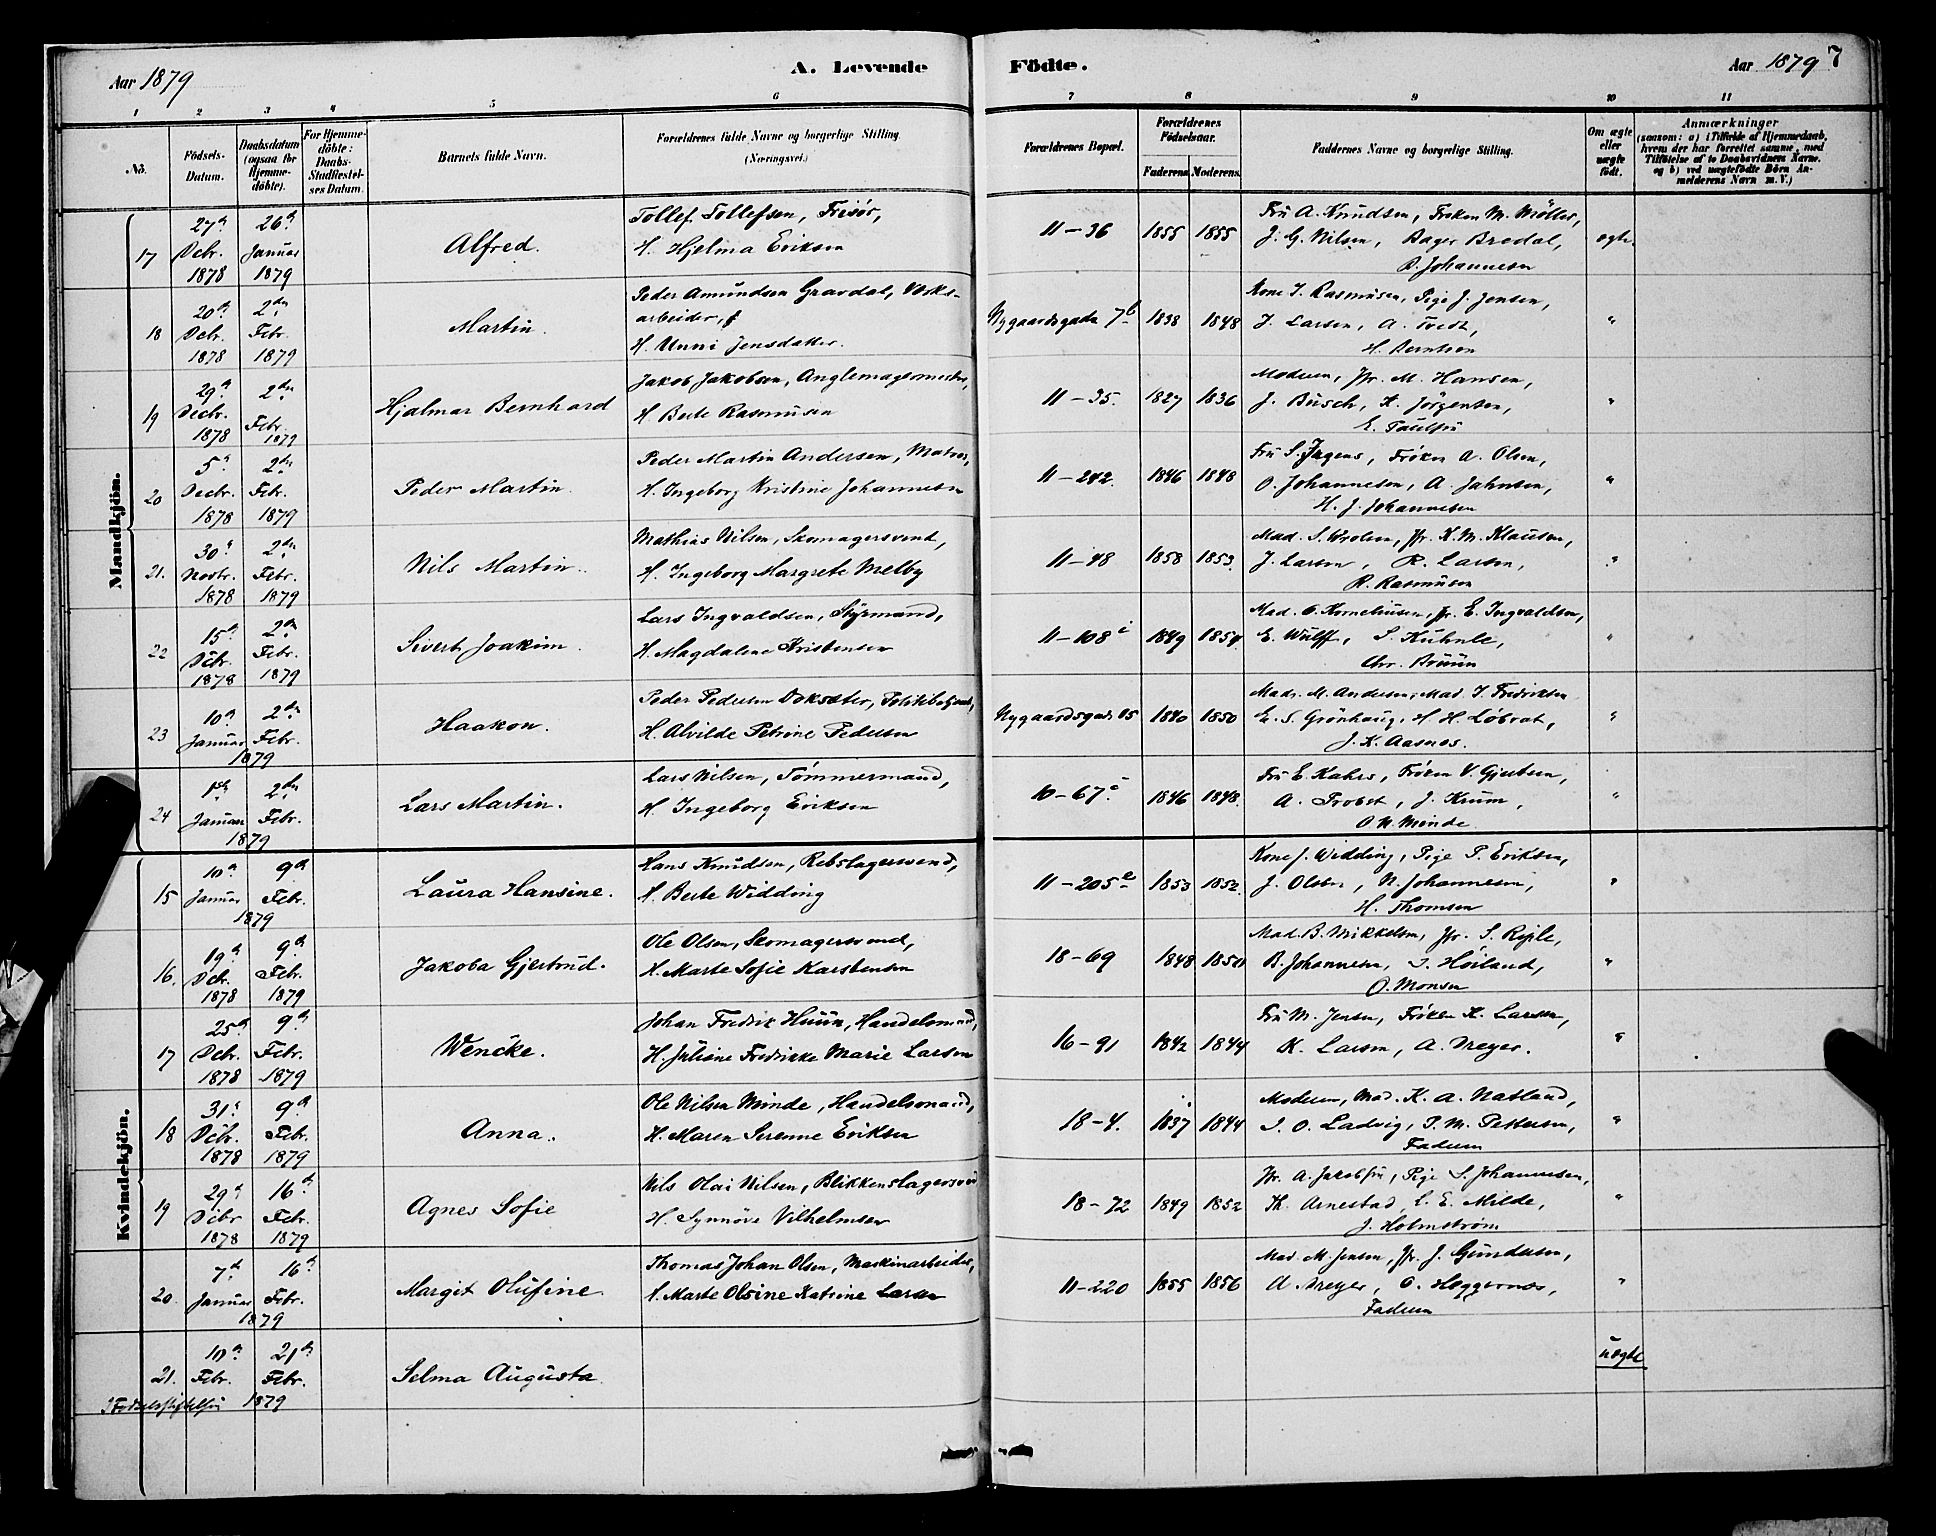 Aar 1879
A. Levende Födte.
Aar 1879 7
1 2 3 4 5 6 7 8 9 10 11
No. Födsels-Datum. Daabsdatum (ogsaa for Hjemme-döbte). For Hjemme-döbte: Daabs-Stadfæstel-ses Datum. Barnets fulde Navn. Forældrenes fulde Navne og borgerlige Stilling. (Næringsvei.) Forældrenes Bopæl. Forældrenes Födselsaar. Faderens Moderens. Faddernes Navne og borgerlige Stilling. Om ægte eller uægte födt. Anmærkninger (saasom: a) i Tilfælde af Hjemmedaab, hvem der har forrettet samme, med Tilföielse af to Daabsvidners Navne. og b) ved uægtefödte Börn An-melderens Navn m. V.)
Mandkjön.
27de 26de Tollef Tollefsen, Frisør, Fru A. Knudsen, Frøken M. Möller,
17 Decbr. Januar Alfred. H. Hjelma Eriksen 11-36 1855 1855 J. G. Nilsen, Bager Bredal, ægte
1878 1879 D. Johannesen
20de 2den Peder Amundsen Gravdal, Værks- Kone I. Rasmusen, Pige J. Jensen,
18 Decbr. Febr. Martin. arbeider, Nygaardsgade 7b 1838 1848 J. Larsen, A. Tvedt, "
1878 1879 H. Unni Jensdatter. H. Berntsen
29de 2den Jakob Jakobsen, Anglemagermester, Moderen, Jfr. M. Hansen,
19 Decbr. Febr. Hjalmar Bernhard H. Berte Rasmusen 11-35. 1827 1836 J. Busch, K. Jörgensen, "
1878 1879 E. Paulsen
5te 2den Peder Martin Andersen, Matros, Fru S. Jrgens, Frøken A. Olsen,
20 Decbr. Febr. Peder Martin. H. Ingeborg Kristine Johannesen 11-242. 1846 1848 O. Johannesen, A. Jahnsen, "
1878 1879 H. J. Johannesen
30te 2den Mathias Nilsen, Skomagersvend, Mad. S. Krolsen, Jfr. K. M. Klausen,
21. Novbr. Febr. Nils Martin. H. Ingeborg Margrete Melby 11-48 1858 1853. J. Larsen, R. Larsen, "
1878 1879 R. Rasmusen
15de 2den Lars Ingvaldsen, Styrmand, Mad. O. Korneliusen, Jfr. E. Ingvaldsen,
22 Decbr. Febr. Sivert Joakim. H. Magdalene Kristensen 11-108i 1849 1854. E. Wulff, S. Kuhnle, "
1878 1879 Chr. Bruun
10de 2den Peder Pedersen Doksæter, Politibetjent, Mad. M. Andersen, Mad. I. Fredriksen
23 Januar Febr. Haakon. H. Alvilde Petrine Pedersen Nygaardsgad. 85 1840 1850 E. S. Grönhaug, H. H. Löbrat, "
1879 J. K. Aasnes.
1ste 2den Lars Nilsen, Tömmermand, Fru E. Kahrs, Frøken V. Gjertsen,
24 Januar Febr. Lars Martin. H. Ingeborg Eriksen 10-67c 1846 1848. A. Frobst, J. Krum, "
1879 O. N. Minde
Kvindekjön.
10de 9de Hans Knudsen, Rebslagersvend, Kone J. Widding, Pige P. Eriksen,
15 Januar Febr. Laura Hansine. H. Berte Widding 11-205e 1853 1852. J. Olsen, N. Johannesen, "
1879 H. Thomsen
19de 9de Ole Olsen, Skomagersvend, Mad. B. Mikkelsen, Jfr. S. Rejle,
16. Decbr. Febr. Jakoba Gjertrud. H. Marte Sofie Karstensen 18-69 1848 1850 B. Johannesen, I. Høiland, "
1878 1879 O. Monsen
25de 9de Johan Fredrik Huun, Handelsmand, Fru M. Jensen, Frøken K. Larsen,
17 Decbr. Febr. Wencke. H. Juliane Fredrikke Marie Larsen 16-91 1842 1844 K. Larsen, A. Meyer. "
1878 1879
31te 9de Ole Nilsen Minde, Handelsmand, Moderen, Mad. K. A. Natland,
18 Decbr. Febr. Anna. H. Maren Serenne Eriksen 18-4. 1837 1844 I. O. Ladvig, P. M. Pettersen, "
1878 1879 Faderen
29de 16de Nils Olai Nilsen, Blikkenslagersvd Jfr. A. Jakobsen, Pige S. Johannesen,
19 Decbr Febr. Agnes Sofie H. Synnöve Vilhelmsen 18-72 1849 1852 Th. Arnestad, L. E. Milde, "
1878 1879 J. Holmström
7de 16de Thomas Johan Olsen, Maskinarbeider, Mad. M. Jensen, Jfr. J. Gundersen,
20. Januar Febr. Margit Olufine. H. Marte Olsine Katrine Larsen 11-220 1855 1856 A. Meyer, O. Heggernæs, "
1879 Faderen
10de 21de uægte
21. Febr. Febr. Selma Augusta.
I Fødselsstiftelsen 1879